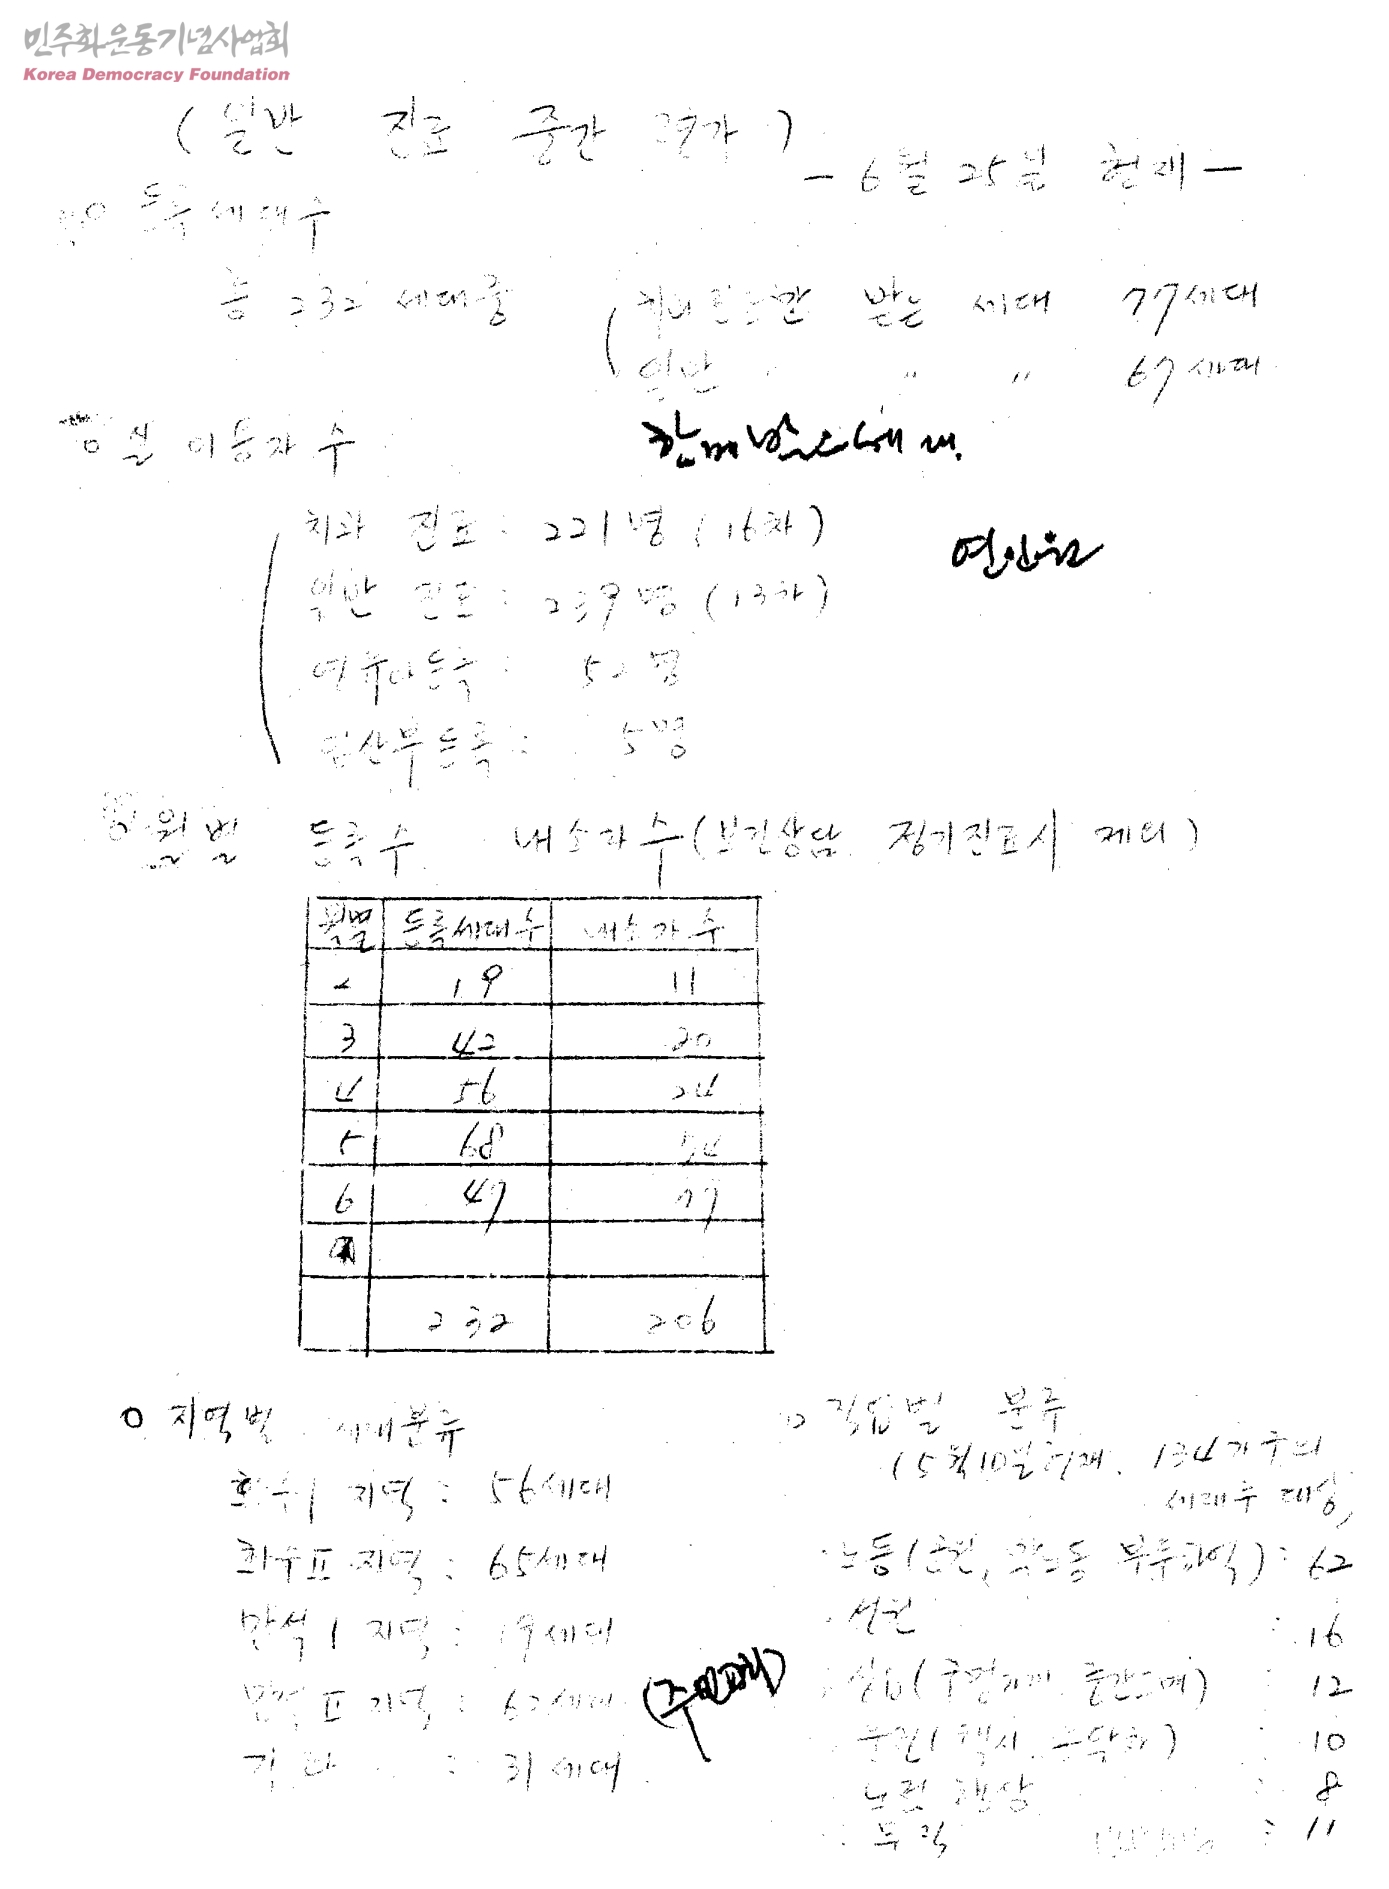 민주화운동기념사업회
Korea Democracy Foundation
(일반 진료 중간 평가)
- 6월 25일 현재 -
o 등록세대수
총 232 세대중
치과진료만 받은 세대 77세대
일반 " " " 67세대
o 실 이용자수
치과 진료 : 221명 (16차)
연인원
일반 진료 : 239명 (13차)
영유아등록 : 52명
임산부등록 : 5명
월별 등록수 내소자수(보건상담 정기진료시 제외)
월별 등록세대수 내소자수
2 19 11
3 42 20
4 56 24
5 68 54
6 47 77
232 206
o 지역별 세대분류
화수 1 지역 : 56세대
화수 II 지역 : 65세대
만석 1 지역 : 19세대
만석 II 지역 : 62세대
기타 : 31세대
o 직업별 분류
(5월10일현재. 134가구의
세대주 대상)
노동( 막노동 부두하역) : 62
선원 : 16
상업(구멍가게 ) : 12
운전(택시 ) : 10
노점 행상 : 8
무직 : 11